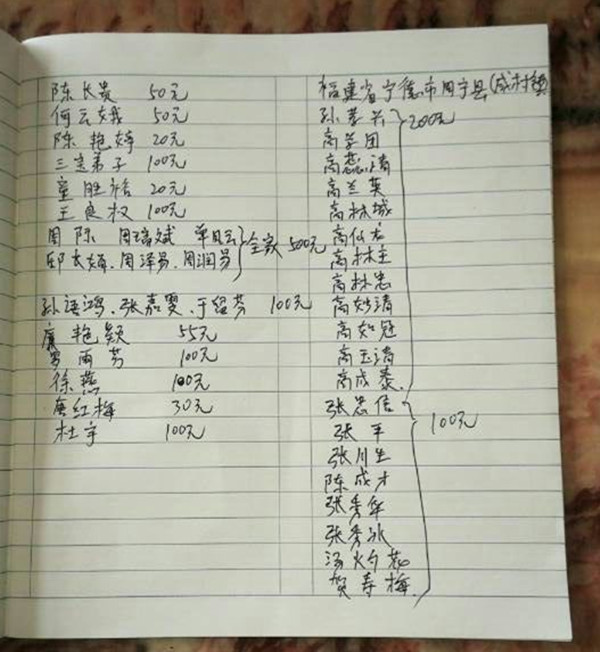 陈长贵 50元
何云娥 50元
陈艳婷 20元
三宝弟子 100元
童胜 20元
王良权 100元
周陈 周瑞斌 单贝云 全家 500元
邱长娥、周泽易、周润易
孙语鸿、张嘉雯、于绍芬 100元
艳颖 55元
罗雨芳 100元
徐燕 100元
唐红梅 30元
杜宇 100元
福建省宁德市周宁县(咸村镇)
孙孝兴 200元
高学团
高蕊清
高兰英
高林城
高仙龙
高林主
高林忠
高妙清
高如冠
高玉清
高成泰
张忠信 100元
张平
张川生
陈成才
张秀华
张秀冰
汤
贺寿梅